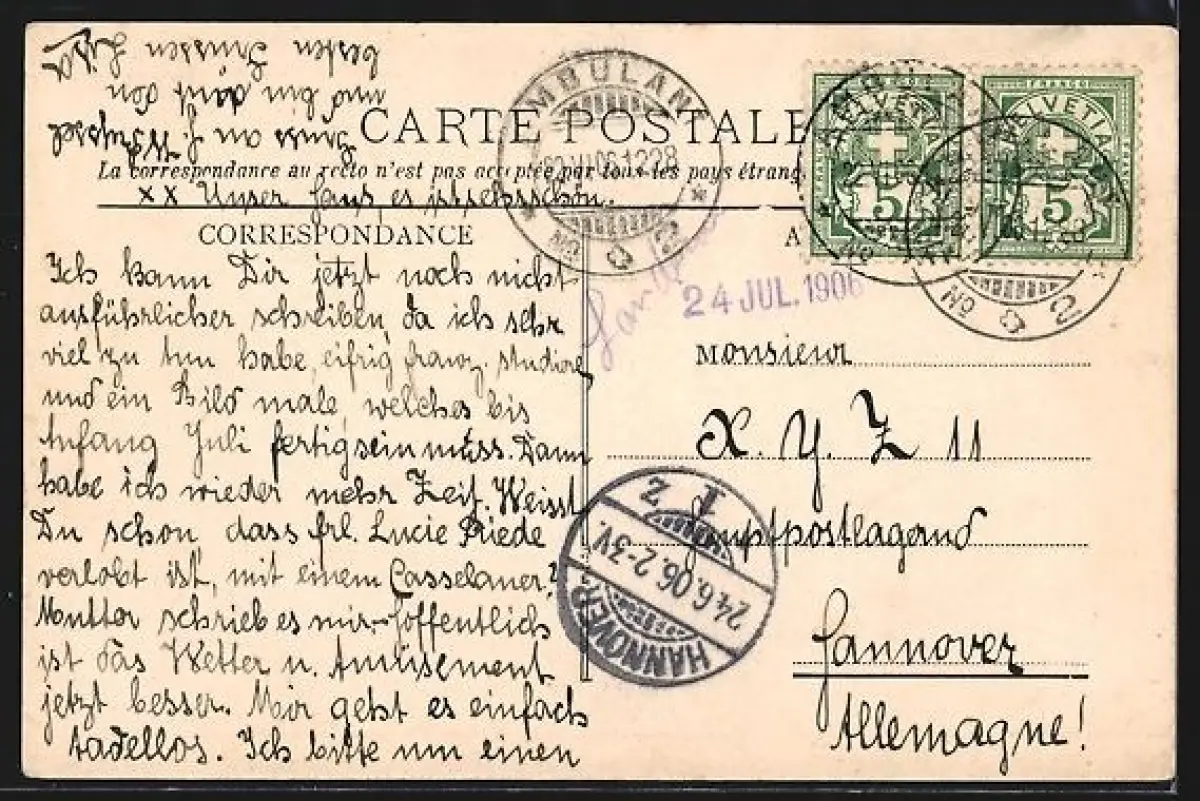 CARTE POSTALE
La correspondance au recto n'est pas acceptée par tous les pays étrang
XX Unser Haus, es ist sehr schön.
CORRESPONDANCE
A
Ich kann Dir jetzt noch nicht
ausführlicher schreiben, da ich sehr
viel zu tun habe, eifrig franz. studiere
und ein Bild male, welches bis
Anfang Juli fertig sein muss. Dann
habe ich wieder mehr Zeit. Weisst
Du schon dass Frl. Lucie Riede
verlobt ist, mit einem Casselaner?
Mutter schrieb es mir. Hoffentlich
ist das Wetter u. Amüsement
jetzt besser. Mir geht es einfach
tadellos. Ich bitte um einen
und bin mit den
besten Grüssen
AMBULANT
VI.06.1228
No 2
HELVETIA
FRANCO
5
HELVETIA
FRANCO
5
AMBULANT
No 2
24 JUL. 1906
Monsieur
X. Y. Z 11
Hauptpostlagernd
Hannover
Allemagne!
HANNOVER
24.6.06.2-3V.
1 Z